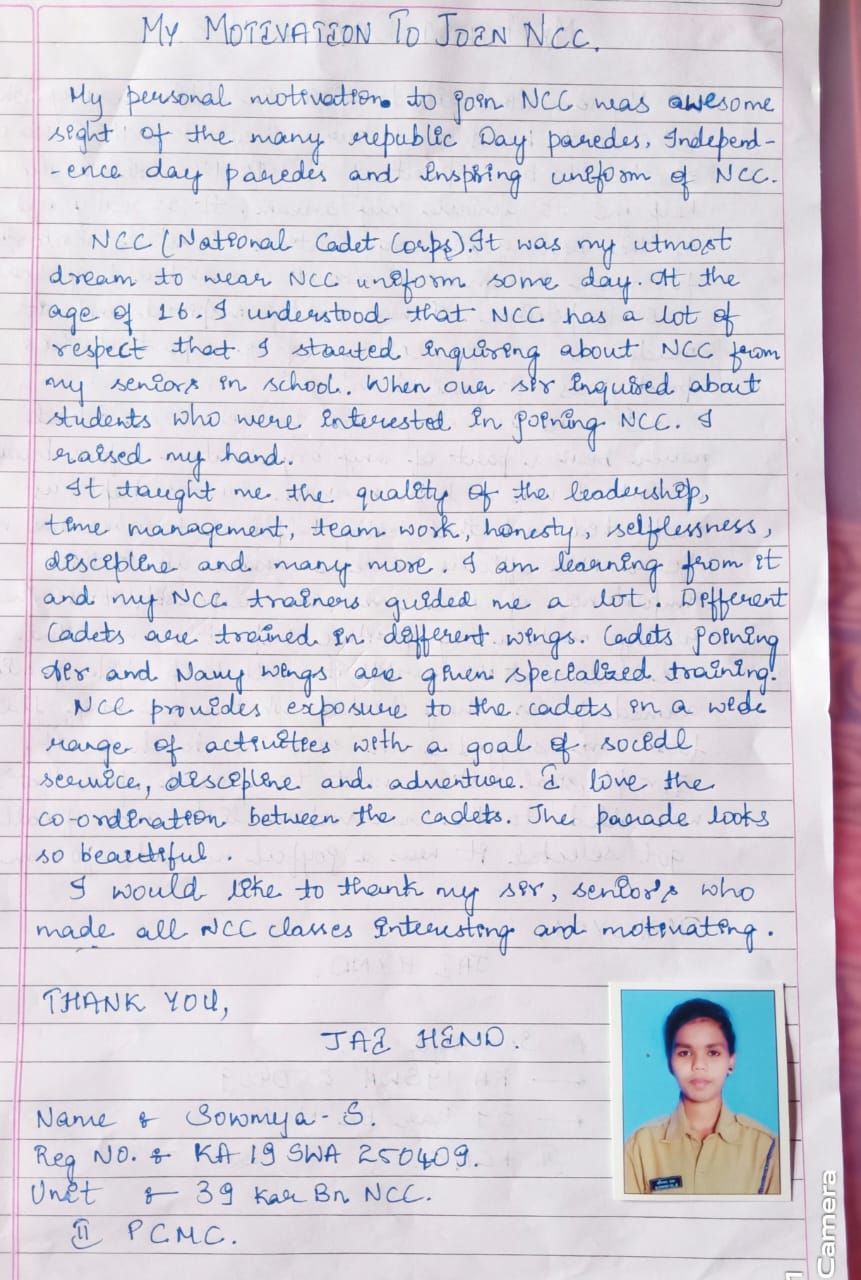 MY MOTIVATION TO JOIN NCC.
My personal motivation to join NCC was awesome
sight of the many republic Day paredes, Independ-
-ence day paredes and inspiring uniform of NCC.
NCC (National Cadet Corps). It was my utmost
dream to wear NCC uniform some day. At the
age of 16. I understood that NCC has a lot of
respect that I started inquiring about NCC from
my seniors in school. When our sir inquired about
students who were interested in joining NCC. I
raised my hand.
It taught me the quality of the leadership,
time management, team work, honesty, selflessness,
discipline and many more. I am learning from it
and my NCC trainers guided me a lot. Different
Cadets are trained in different wings. Cadets joining
Air and Navy wings are given specialized training.
NCC provides exposure to the cadets in a wide
range of activities with a goal of social
service, discipline and adventure. I love the
co-ordination between the cadets. The parade looks
so beautiful.
I would like to thank my sir, senior's who
made all NCC classes interesting and motivating.
THANK YOU,
JAI HIND.
Name : Sowmya - S.
Reg NO. : KA 19 SWA 250409.
Unit : 39 Kar Bn NCC.
II PCMC.
Camera